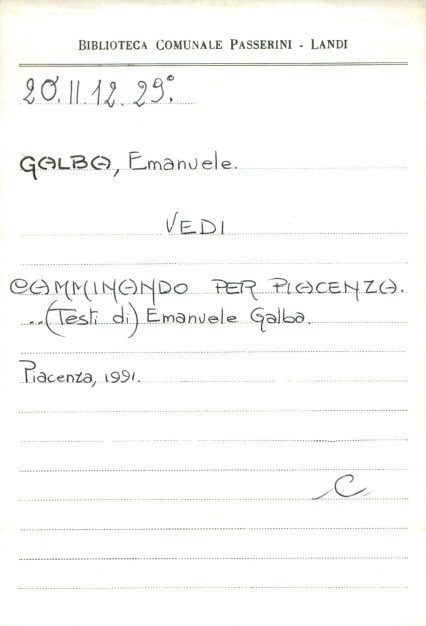 BIBLIOTECA COMUNALE PASSERINI - LANDI
20.II.12.29°.
GALBA, Emanuele.
VEDI
CAMMINANDO PER PIACENZA.
..(Testi di) Emanuele Galba.
Piacenza, 1991.
C